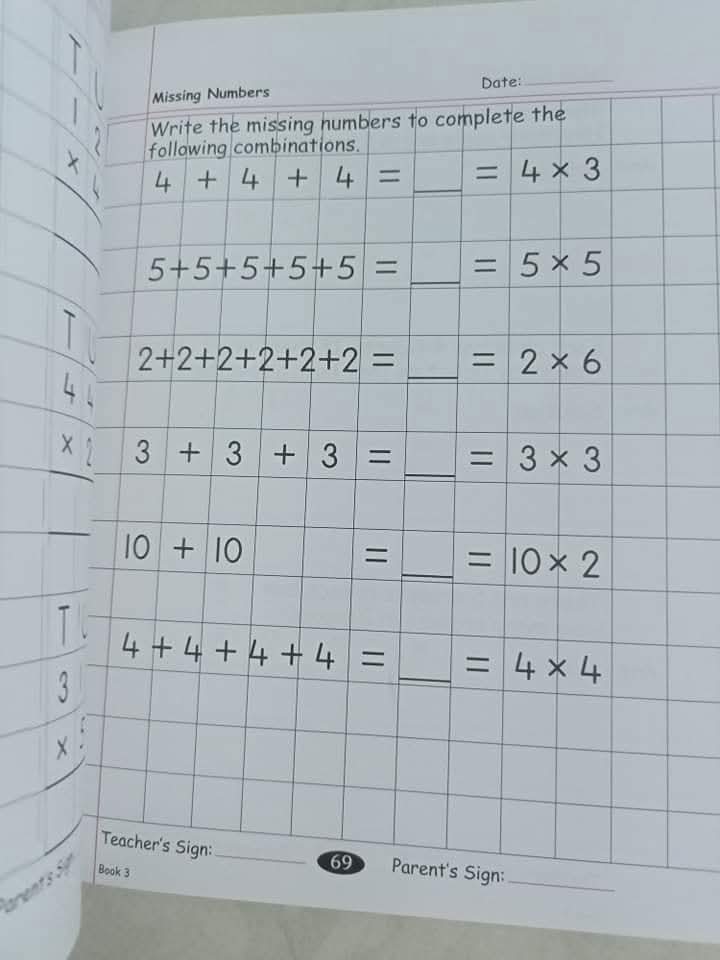 T U
1 2
× 4
T U
4 4
× 2
T U
3
× 5
Parent's Sign
Missing Numbers
Date:
Write the missing numbers to complete the
following combinations.
4 + 4 + 4 = ___ = 4 × 3
5+5+5+5+5 = ___ = 5 × 5
2+2+2+2+2+2 = ___ = 2 × 6
3 + 3 + 3 = ___ = 3 × 3
10 + 10 = ___ = 10 × 2
4 + 4 + 4 + 4 = ___ = 4 × 4
Teacher's Sign:
69
Parent's Sign:
Book 3